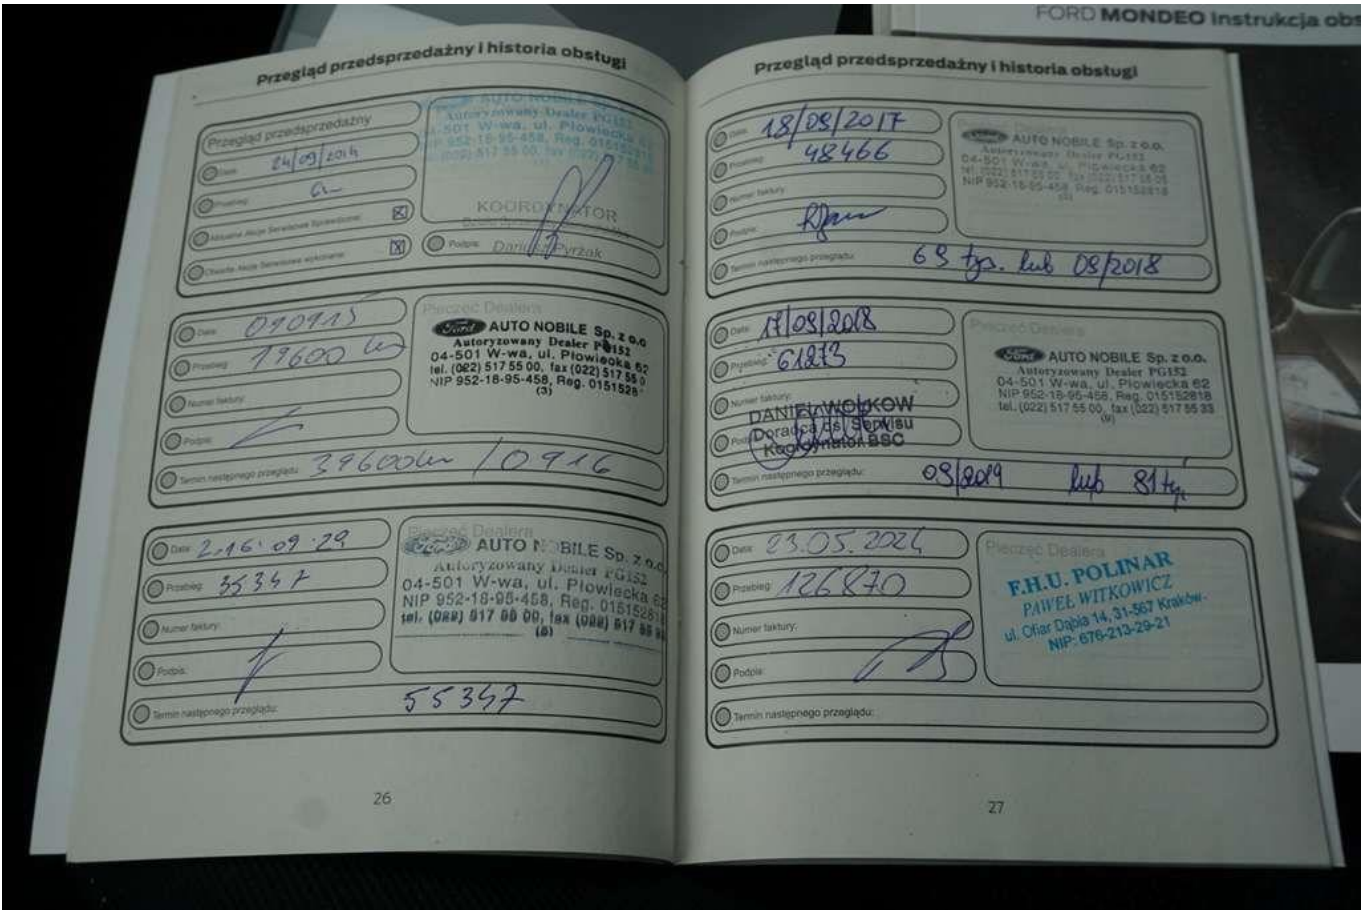 FORD MONDEO Instrukcja obs
Przegląd przedsprzedażny i historia obsługi
Przegląd przedsprzedażny
Data: 24/09/2014
Przebieg:
Aktualne Akcje Serwisowe Sprawdzone:
Otwarte Akcje Serwisowe wykonane:
AUTO NOBILE Sp. z o.o.
Autoryzowany Dealer PG152
04-501 W-wa, ul. Płowiecka 62
NIP 952-18-95-458, Reg. 0151528
(022) 517 55 00, fax
KOORDYNATOR
Podpis: Dariusz Pyrzak
Data: 090915
Przebieg: 19600 km
Numer faktury:
Podpis:
Termin następnego przeglądu: 39600 km / 0916
Pieczęć Dealera
Ford AUTO NOBILE Sp. z o.o
Autoryzowany Dealer PG152
04-501 W-wa, ul. Płowiecka 62
tel. (022) 517 55 00, fax (022) 517 55 0
NIP 952-18-95-458, Reg. 0151528
(3)
Data: 2.16.09.29
Przebieg: 35347
Numer faktury:
Podpis:
Termin następnego przeglądu: 55347
Pieczęć Dealera
Ford AUTO NOBILE Sp. z o.o.
Autoryzowany Dealer PG152
04-501 W-wa, ul. Płowiecka 62
NIP 952-18-95-458, Reg. 0151528
tel. (022) 517 55 00, fax (022) 517 55
(6)
26
Przegląd przedsprzedażny i historia obsługi
Data: 18/09/2017
Przebieg: 48466
Numer faktury:
Podpis:
Termin następnego przeglądu: 69 tys. lub 09/2018
Ford AUTO NOBILE Sp. z o.o.
Autoryzowany Dealer PG152
04-501 W-wa, ul. Płowiecka 62
tel. (022) 517 55 00, fax (022) 517 55
NIP 952-18-95-458, Reg. 015152818
Data: 17/09/2018
Przebieg: 61273
Numer faktury:
DANIEL WOŁKOW
Podpis: Doradca ds. Serwisu
Koordynator BSC
Termin następnego przeglądu: 09/2019 lub 81 ty.
Pieczęć Dealera
Ford AUTO NOBILE Sp. z o.o.
Autoryzowany Dealer PG152
04-501 W-wa, ul. Płowiecka 62
NIP 952-18-95-458, Reg. 015152818
tel. (022) 517 55 00, fax (022) 517 55 33
(9)
Data: 23.05.2024
Przebieg: 126870
Numer faktury:
Podpis:
Termin następnego przeglądu:
Pieczęć Dealera
F.H.U. POLINAR
PAWEŁ WITKOWICZ
ul. Ofiar Dąbia 14, 31-567 Kraków
NIP: 676-213-29-21
27